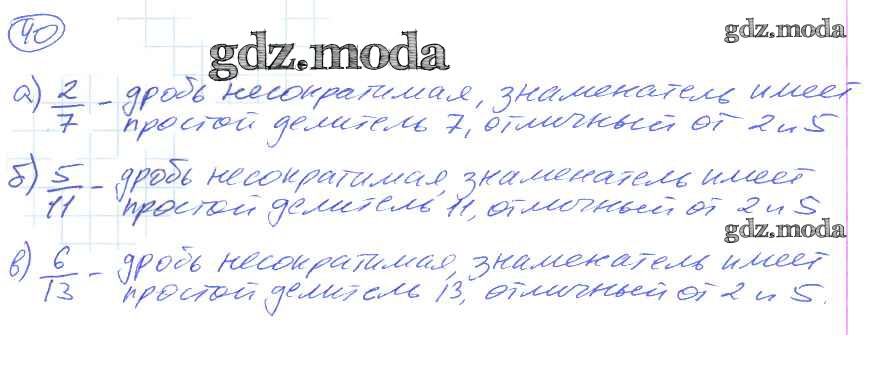 40
gdz.moda
gdz.moda
а) 2/7 - дробь несократимая, знаменатель имеет
простой делитель 7, отличный от 2 и 5
б) 5/11 - дробь несократимая, знаменатель имеет
простой делитель 11, отличный от 2 и 5
gdz.moda
в) 6/13 - дробь несократимая, знаменатель имеет
простой делитель 13, отличный от 2 и 5.